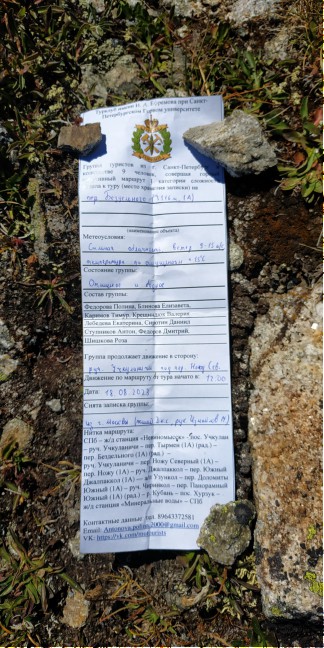 Турклуб имени Н. Д. Ефремова при Санкт-
Петербургском Горном университете
Группа туристов из г. Санкт-Петербург
количестве 9 человек, совершая горный
маршрут 1 категории
к туру (место хранения записки) на
пер. Бездельного (3310м, 1А)
(наименование объекта)
Метеоусловия:
Сильная облачность ветер
температура по ощущениям +15°C
Состояние группы:
Отлично и
Состав группы:
Федорова Полина, Блинова Елизавета,
Каримов Тимур, Крешнодол Валерия
Лебедева Екатерина, Сиротин Даниил
Ступников Антон, Федоров Дмитрий,
Шишкова Роза
Группа продолжает движение в сторону:
руч. Учкуланичи под пер. Ножу Сев.
Движение по маршруту от тура начато в: 12:00
Дата: 18.08.2023
Снята записка группы:
из г. Москвы
Нитка маршрута:
СПб – ж/д станция «Невинномысск» - пос. Учкулан
– руч. Учкуланичи – пер. Тырнем (1А) (рад.) –
пер. Бездельного (1А) (рад.) –
руч. Учкуланичи – пер. Ножу Северный (1А) –
пер. Ножу (1А) (рад.) – руч. Джасппакол – пер. Южный
Джалпакол (1А) – а/л Узункол – пер. Доломиты
Южный (1А) – руч. Чирикол – пер. Панорамный
Южный (1А) (рад.) – р. Кубань – пос. Хурзук –
ж/д станция «Минеральные воды» – СПб
Контактные данные: тел. 89643372581
VK: https://vk.com/